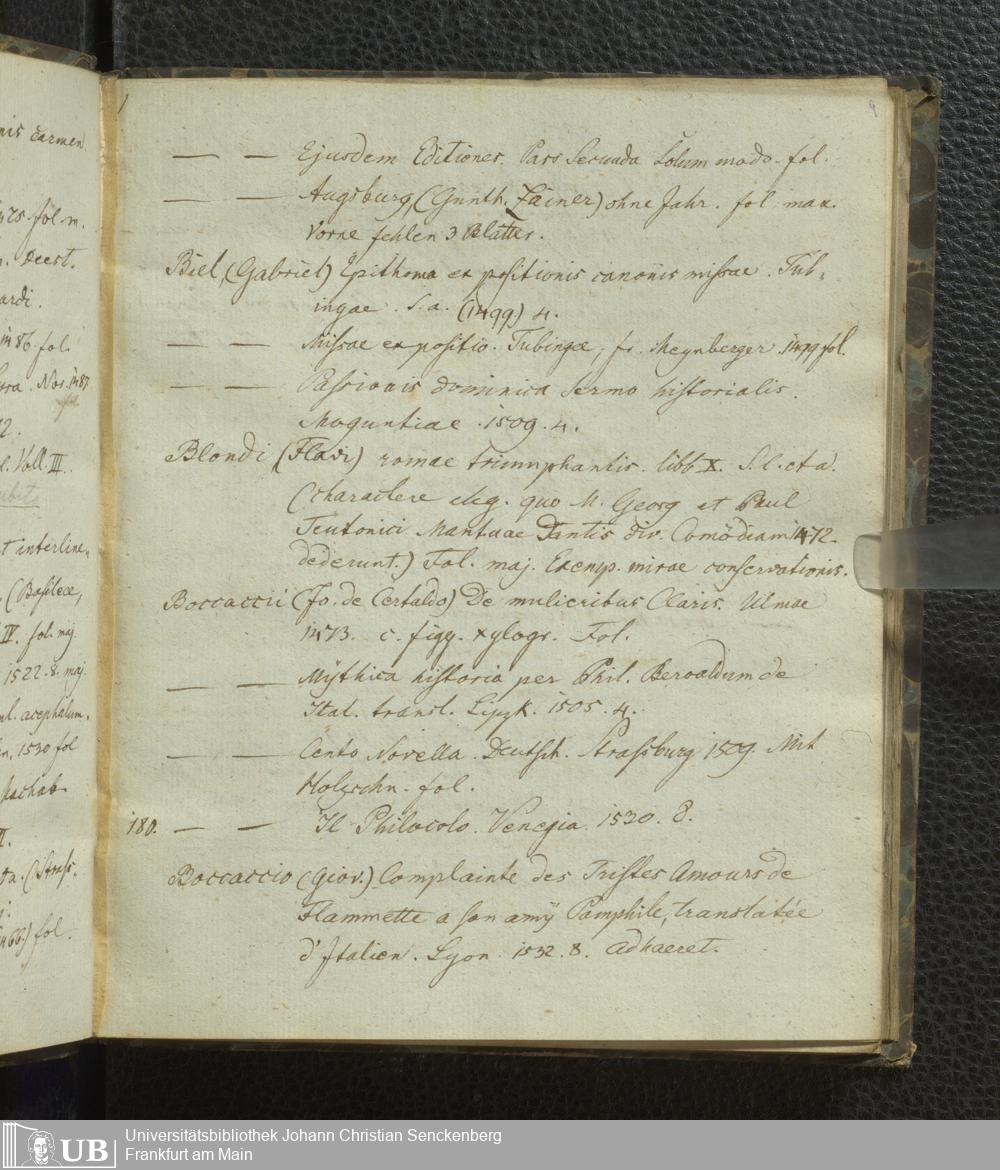 nis Carmen
1475 fol. m.
Deest.
ardi.
1486. fol.
Nor. 1487
fol.
12.
Voll. III.
et interline,
(Basileae,
IV. fol. maj.
1522. 8. maj.
acephalum.
1530 fol
(Strass.
1466.) fol.
9
— — Ejusdem Editiones. Pars Secunda Solum modo. fol.
— — Augsburg, (Gunth. Zainer) ohne Jahr. fol max.
Vorne fehlen 3 Blätter.
Biel, (Gabriel) Epithoma expositionis canonis missae. Tub,
ingae. S. a. (1499.) 4.
— — Missae expositio. Tubingae, fr. Meynberger. 1499 fol.
— — Passionis dominica Sermo historialis.
Moguntiae. 1509. 4.
Blondi (Flavi) romae triumphantis. libb X. S. l. et a.
(charactere eleg. quo M. Georg et Paul
Teutonici Mantuae Dantis div. Comödiam 1472.
dederunt.) Fol. maj. Exemp. mirae conservationis.
Boccaccii (Jo. de Certaldo) De mulieribus Claris. Ulmae
1473. c. figg. xylogr. Fol.
— — Mÿthica historia per Phil. Beroaldum de
Ital. transl. Lipzk. 1505. 4.
— — Cento Novella. Deutsch. Strassburg 1509. Mit
Holzschn. fol.
180. — — Il Philocolo. Venegia. 1530. 8.
Boccaccio (Giov.) Complainte des Tristes Amours de
Flammette a son amÿ Pamphile, translatée
d'Italien. Lyon. 1532. 8. adhaeret.
UB
Universitätsbibliothek Johann Christian Senckenberg
Frankfurt am Main